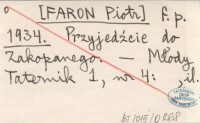 [FARON Piotr] f.p.
1934. Przyjedźcie do
Zakopanego. — Młody
Taternik 1, nr 4: , il.